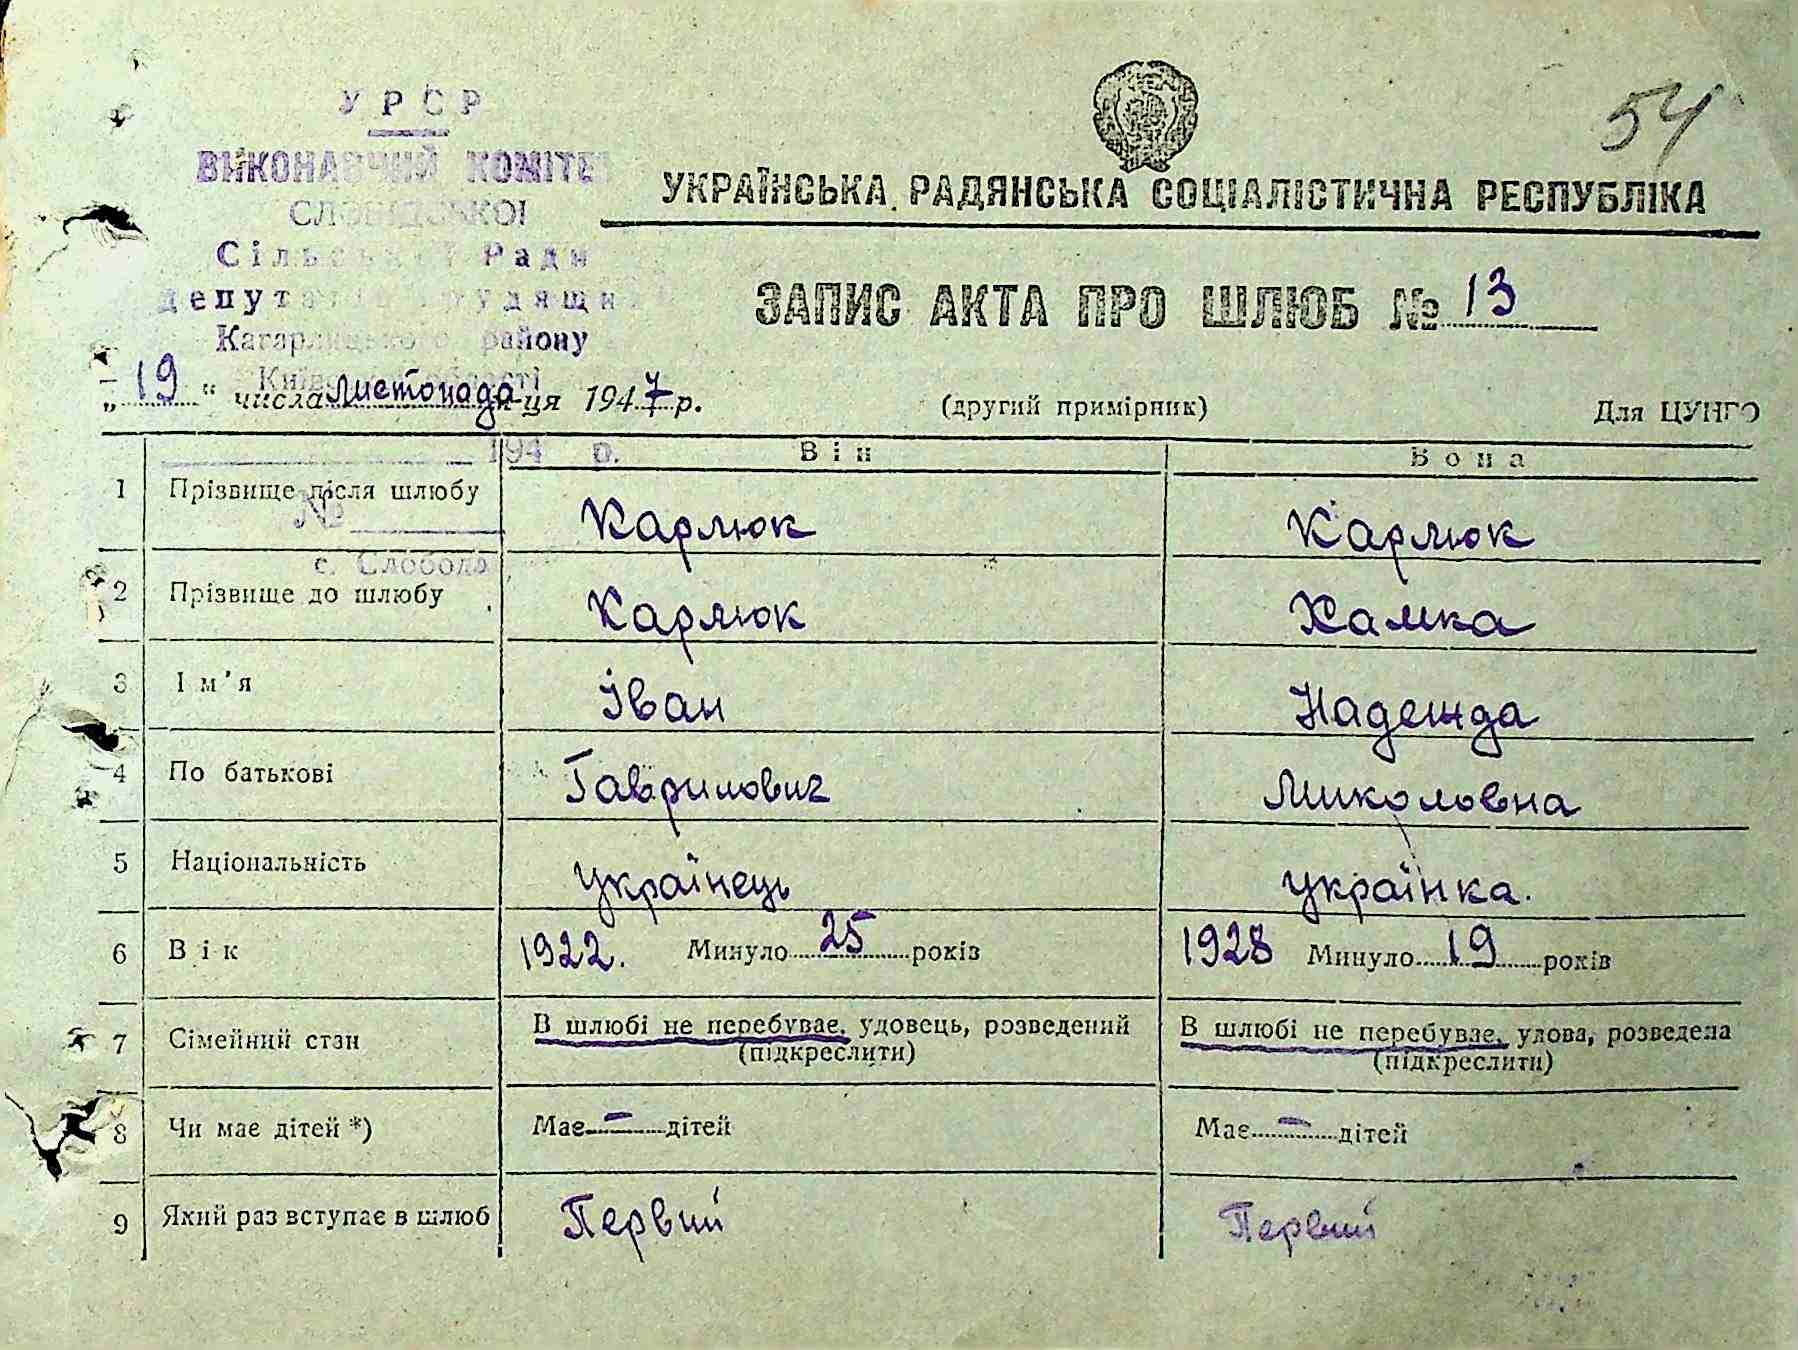 54
УРСР
ВИКОНАВЧИЙ КОМІТЕ
СЛОБІДСЬКОЇ
Сільської Ради
депутатів трудящих
Кагарлицького району
Київської області
194 р.
№
с. Слобода
УКРАЇНСЬКА РАДЯНСЬКА СОЦІАЛІСТИЧНА РЕСПУБЛІКА
ЗАПИС АКТА ПРО ШЛЮБ № 13
„19“ числа листопада м-ця 1947 р. (другий примірник) Для ЦУНГО
Він Вона
1 Прізвище після шлюбу Карлюк Карлюк
2 Прізвище до шлюбу Карлюк Хамка
3 Ім'я Іван Надежда
4 По батькові Гаврилович Миколовна
5 Національність українець українка.
6 Вік 1922. Минуло 25 років 1928 Минуло 19 років
7 Сімейний стан В шлюбі не перебуває, удовець, розведений В шлюбі не перебуває, удова, розведена
(підкреслити) (підкреслити)
8 Чи має дітей *) Має – дітей Має – дітей
9 Який раз вступає в шлюб Первий Первий